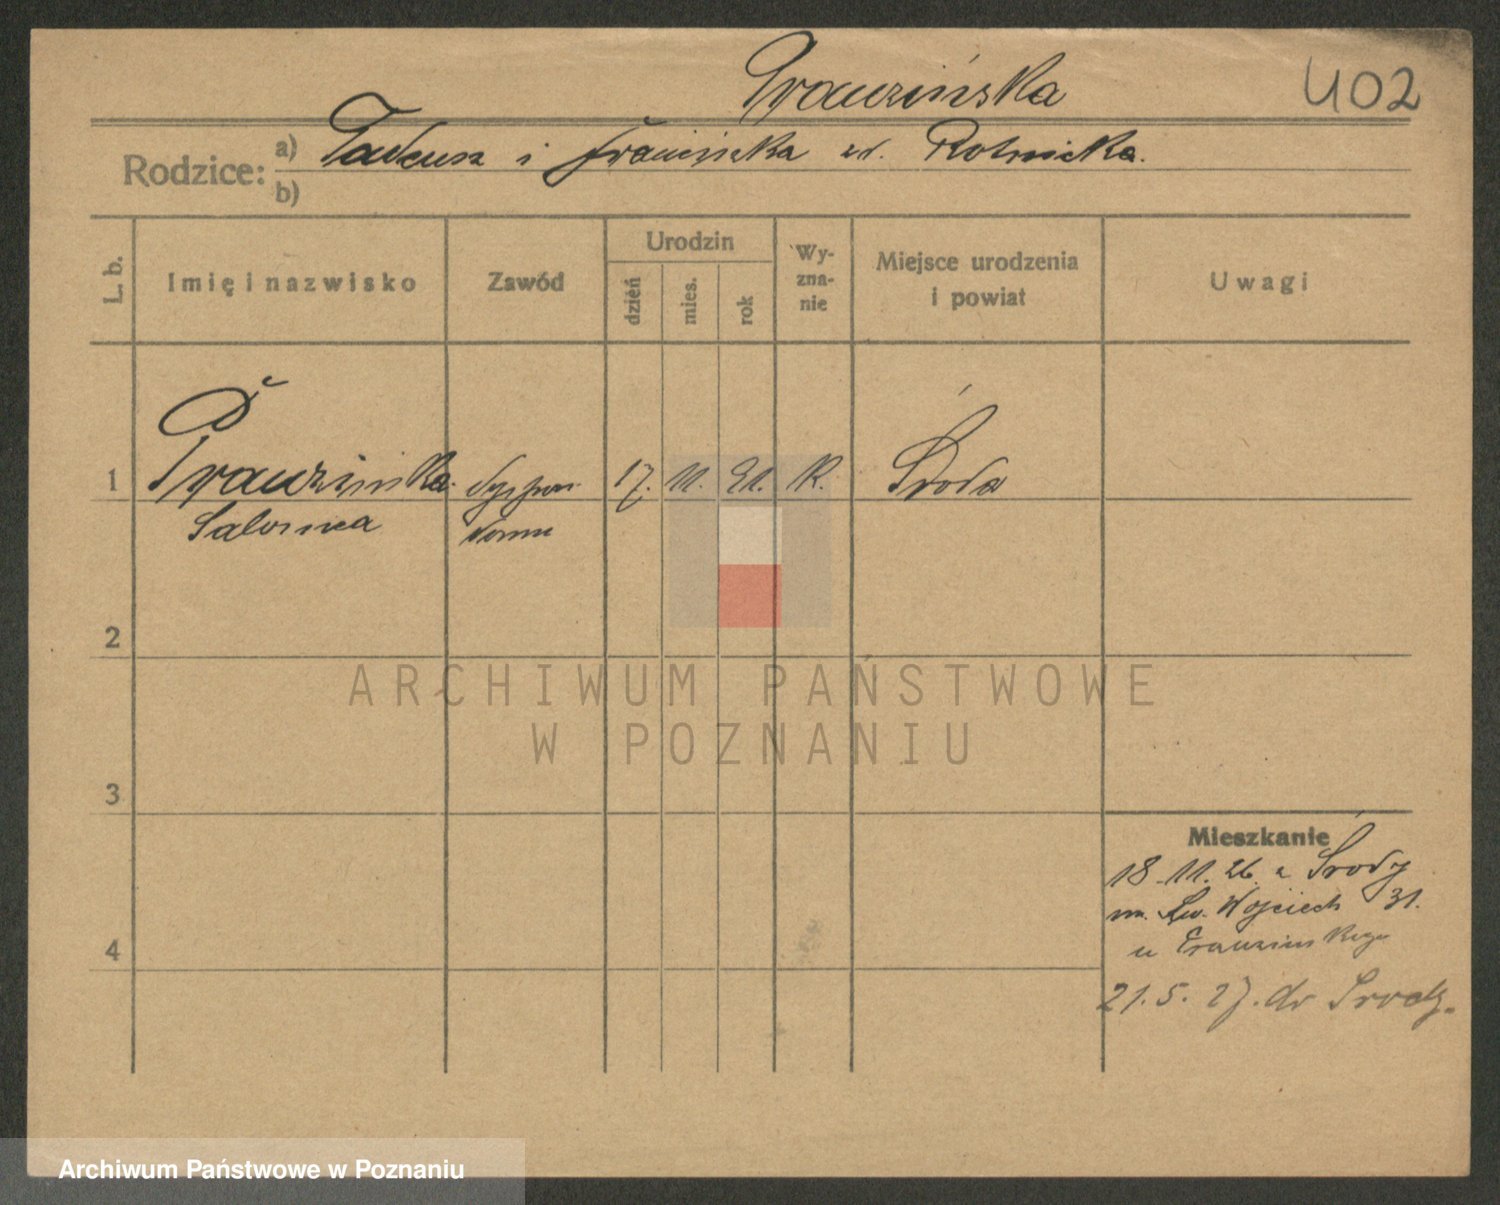 Prauzińska
402
Rodzice:
a) Tadeusz i Franciszka zd. Rotnicka.
b)
L. b.
Imię i nazwisko
Zawód
Urodzin
dzień
mies.
rok
Wy-
zna-
nie
Miejsce urodzenia
i powiat
Uwagi
1
Prauzińska 17. 11. 91. K. Środa
Salomea
2
3
4
Mieszkanie
18.11.26. z Środy
m. Św. Wojciech 31.
u
21.5.27. do Środy.
ARCHIWUM PAŃSTWOWE
W POZNANIU
Archiwum Państwowe w Poznaniu